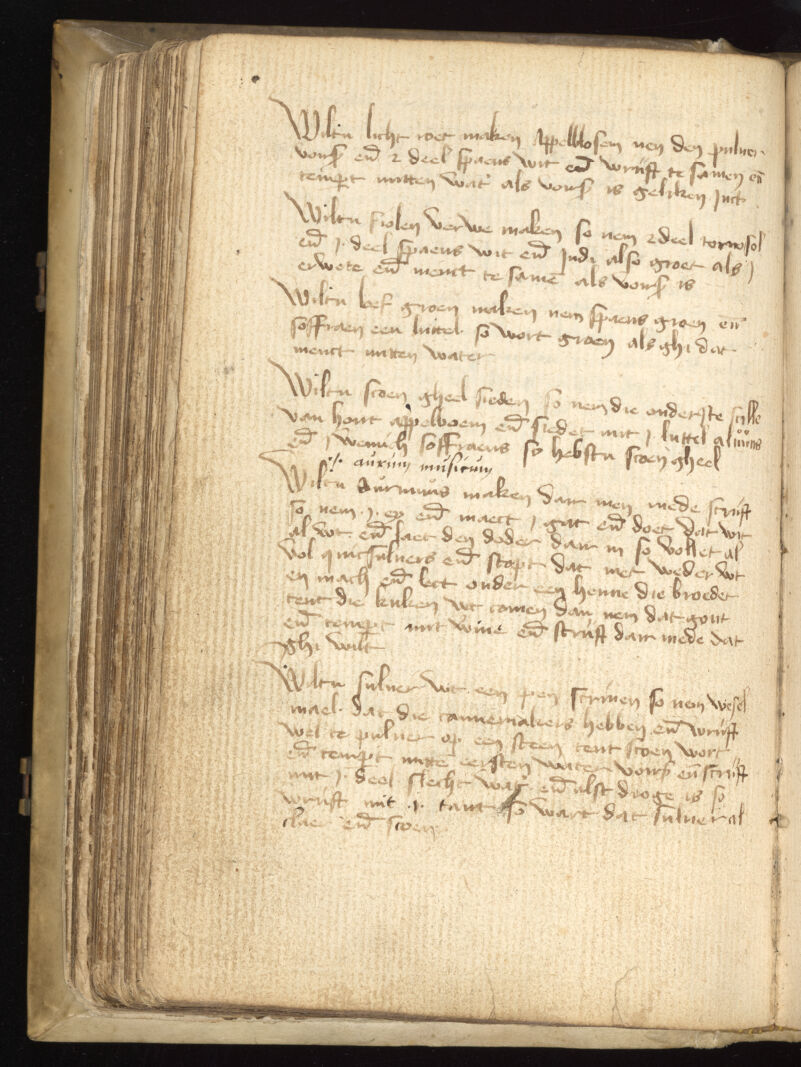 Wiltu licht roet maken Appelblosem nen den puluer
vors̄ en̄ 2 deel spaens wit en̄ wrijft te samen en̄
tempt mitten wat' als vors̄ is geliken Jnct
Wiltu fiolen verwe maken so nem 2 deel tornosol
en̄ j. deel spaens wit en̄ Jndi also groet als j
erwete en̄ menct te samē als vors̄ is
Wiltu groen maken nem spaens groen en̄
soffraen een luttel so wort groen als ghi dat
menct mitten water
Wiltu scoen gheel sieden so nem die onderste scille
van hout appelboem en̄ siedet mit j luttel aluuns
en̄ j wenich soffraens so hebstu scoen gheel
·/· aurum musicum
Wiltu maken dair men mede scrijft
so nem .j. ey en̄ maect j gat en̄ doet dat wit
al wt en̄ laet den doder dair in so vollet al
vol quicsuluers en̄ stopt dat niet weder wt
en mach en̄ lect onder een henne die broedet
tent die kuken wt comen dan nem dat gout
en̄ tempt mit wine en̄ scrijft dair mede dat
ghi wilt
Wiltu suluer wt een pen scriuen so nem wesel
mael dat die cannemakers hebben en̄ wrijft
wel te puluer op een steen tent scoen wort
en̄ tempt mittē eersten water vors̄ en̄ scrijft
mit j. deel slecht wat' en̄ alst droge is so
wrijft mit .j. tant so wart dat suluer al
claer en̄ scoen